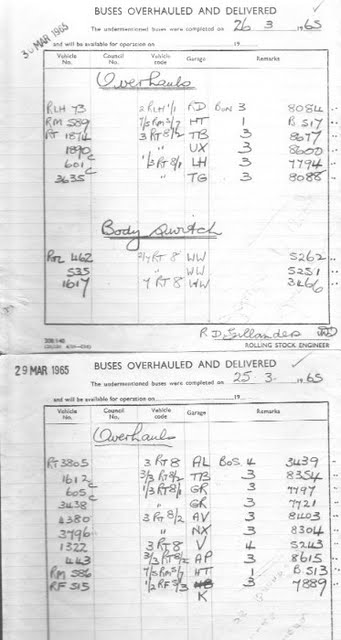 BUSES OVERHAULED AND DELIVERED
30 MAR 1965
The undermentioned buses were completed on 26 3 1965
and will be available for operation on 19
Vehicle No. Council No. Vehicle code Garage Remarks
Overhauls
RLH 73 2 RLH 1/1 RD BOS 3 8084
RM 589 7/5 RM 5/7 HT 1 B 517
RT 1874 3 RT 8/2 TB 3 8677
1890 " UX 3 8600
601 C 1/3 RT 8/1 LH 3 7794
3635 C " TG 3 8088
Body Switch
RTL 462 2/7 RT 8 WW 5262
535 " WW 5251
1617 7 RT 8 WW 3266
ROLLING STOCK ENGINEER
BUSES OVERHAULED AND DELIVERED
29 MAR 1965
The undermentioned buses were completed on 25 3. 1965
and will be available for operation on 19
Vehicle No. Council No. Vehicle code Garage Remarks
Overhauls
RT 3805 3 RT 8 AL BOS. 4 3439
1612 3/3 RT 8/2 TB 3 8354
605 C 1/3 RT 8/1 GR 3 7797
3438 C " GR 3 7721
4380 3 RT 8/2 AV 3 8403
3796 " NX 3 8304
1322 3 RT 8 V 4 5243
443 3/1 RT 8/2 AP 3 8615
RM 586 7/5 RM 5/7 HT 1 B. 513
RF 515 1/2 RF 5/3 3 7889
K